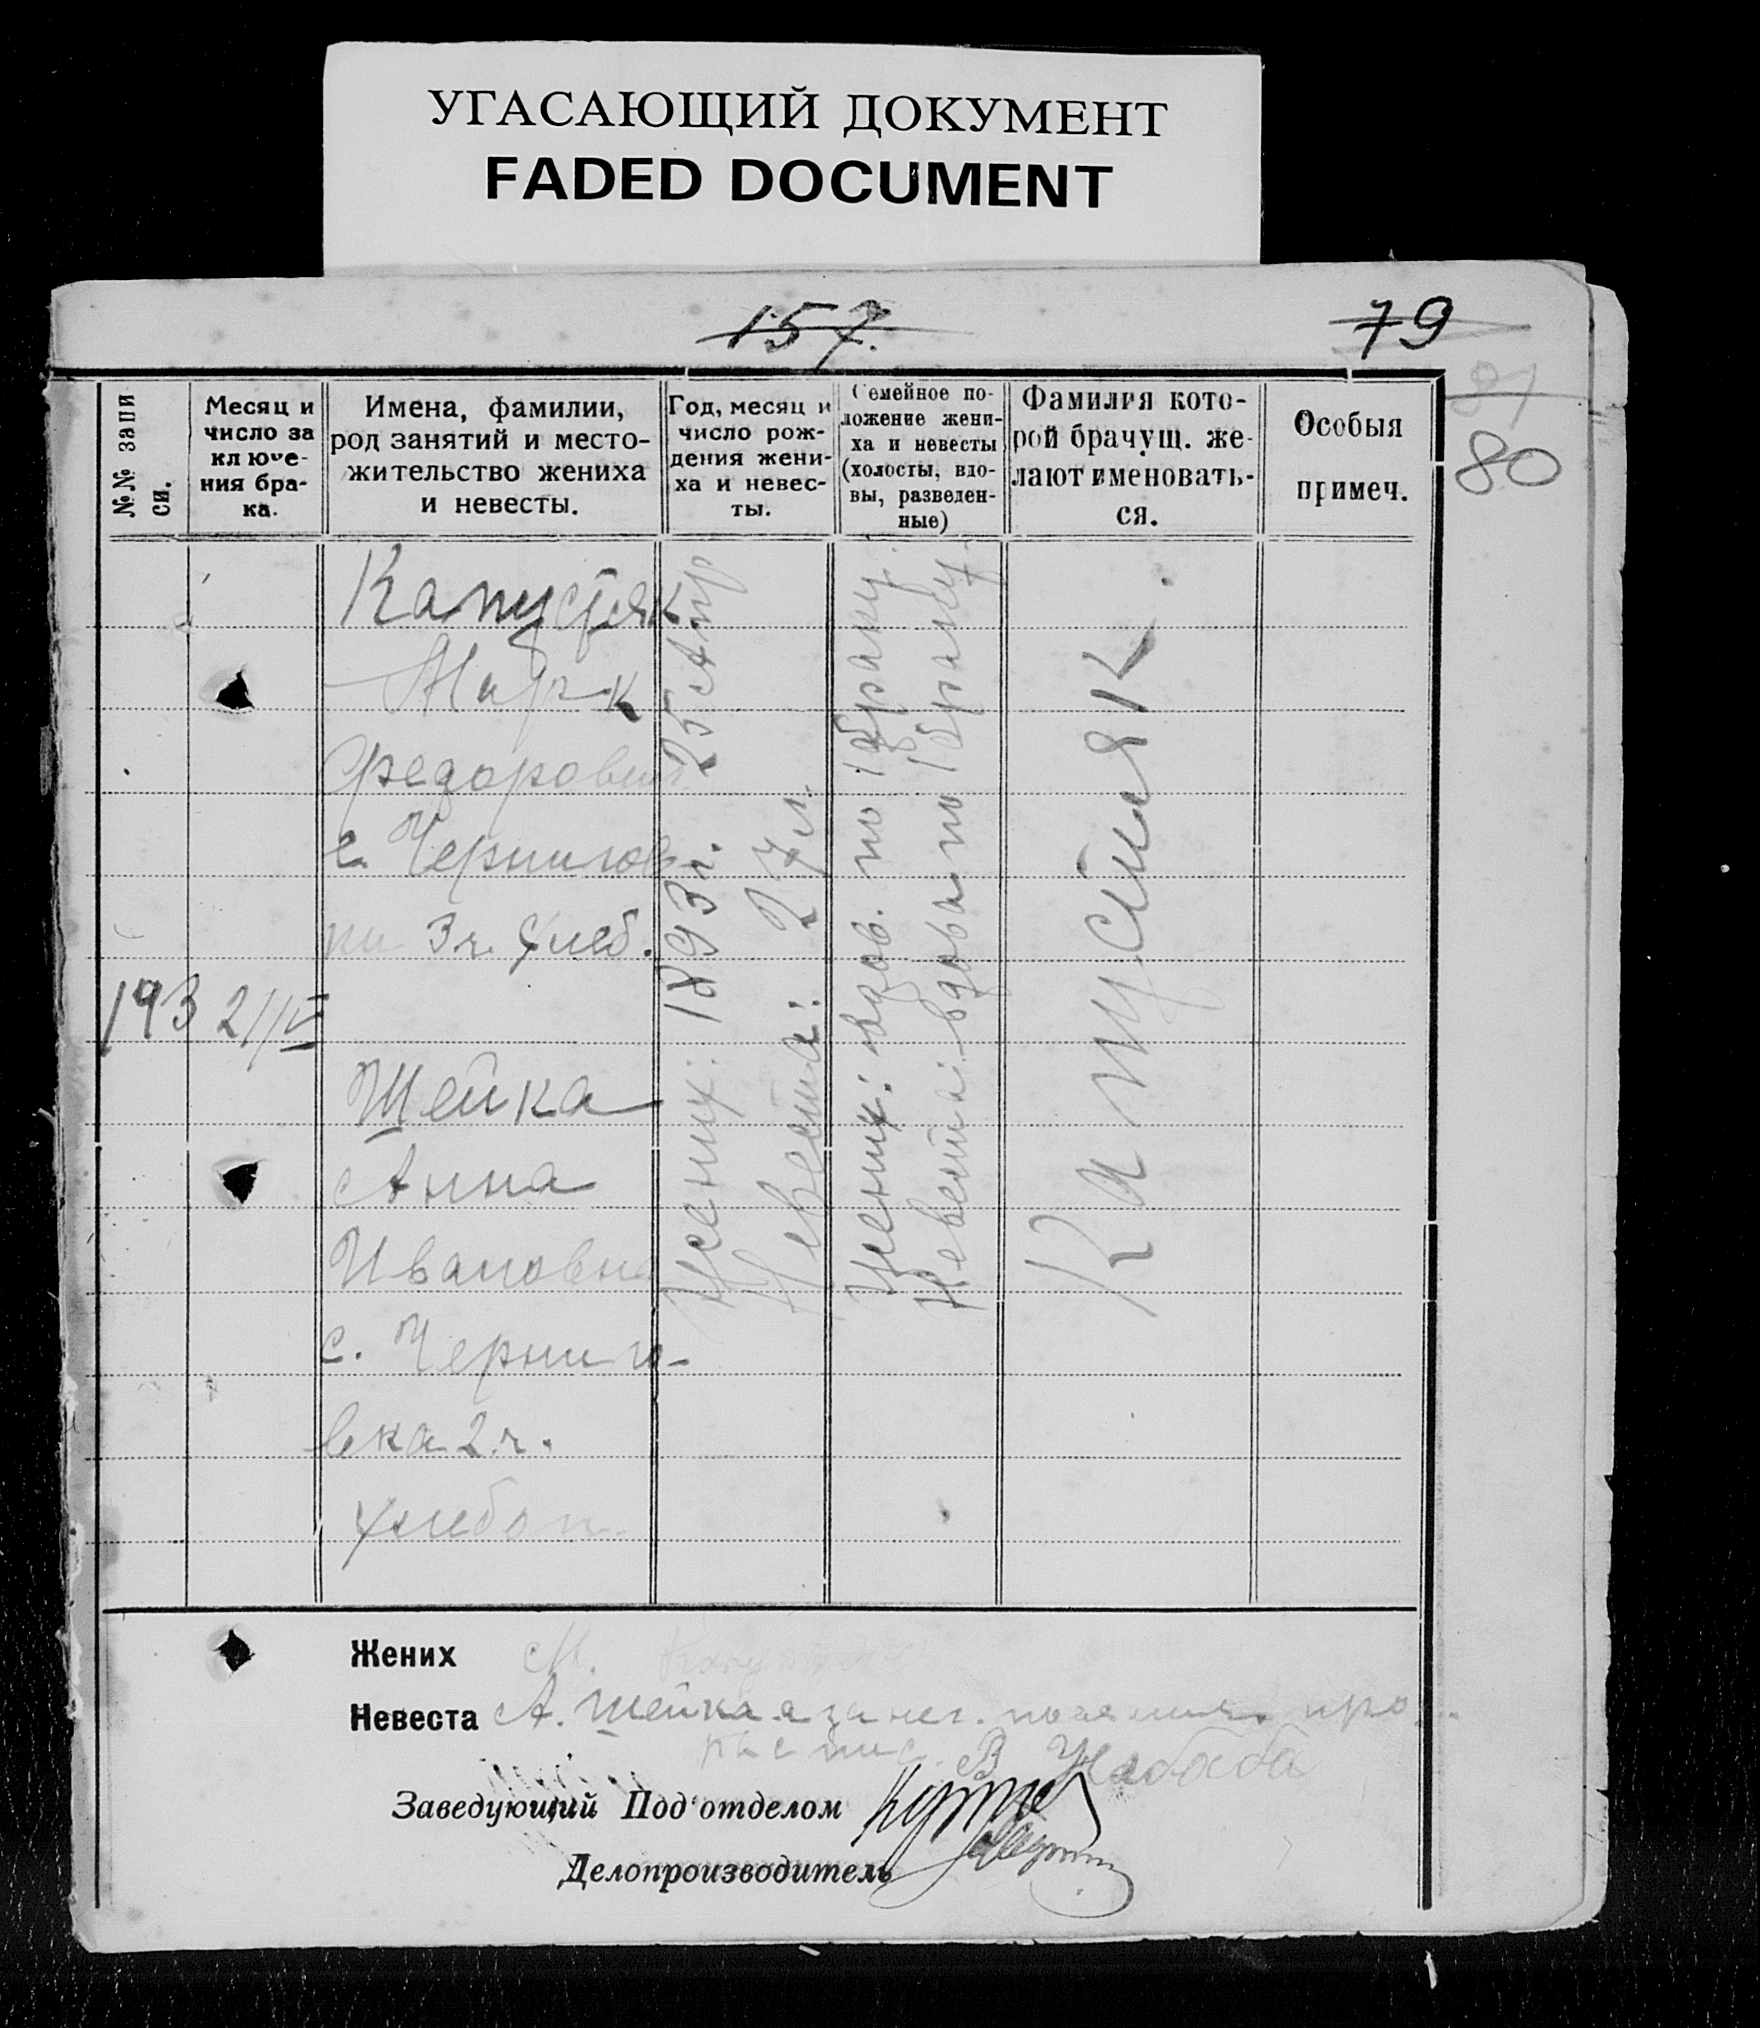 УГАСАЮЩИЙ ДОКУМЕНТ
FADED DOCUMENT
157.
79
81
80
№№ запи
си.
Месяц и
число за
ключе-
ния бра-
ка.
Имена, фамилии,
род занятий и место-
жительство жениха
и невесты.
Год, месяц и
число рож-
дения жени-
ха и невес-
ты.
Семейное по-
ложение жени-
ха и невесты
(холосты, вдо-
вы, разведен-
ные)
Фамилия кото-
рой брачущ. же-
лают именовать-
ся.
Особыя
примеч.
193
2/IV
Капустяк
Марк
Федорович
с. Чернигов-
ка 3 ч. хлеб.
Шейка
Анна
Ивановна
с. Черниго-
вка 2 ч.
хлебоп.
Жених: 1893 г. 25 Апр
Невеста: 27 л.
Жених: вдов. по 1 браку.
Невеста: вдова по 1 браку.
Капустяк
Жених М.
Невеста А. Шейка а за нег. по
распис. В
Заведующий Под'отделом
Делопроизводитель